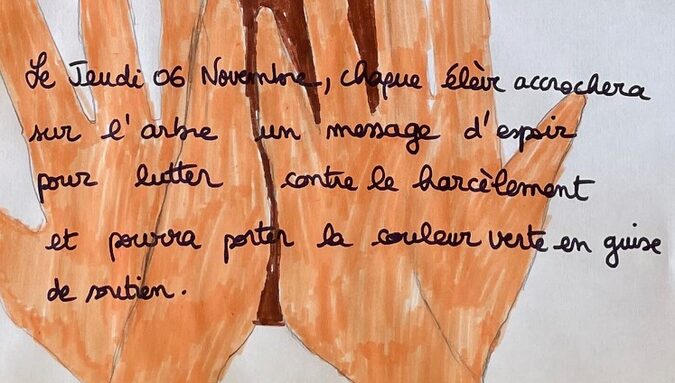 Le Jeudi 06 Novembre, chaque élève accrochera
sur l'arbre un message d'espoir
pour lutter contre le harcèlement
et pourra porter la couleur verte en guise
de soutien.